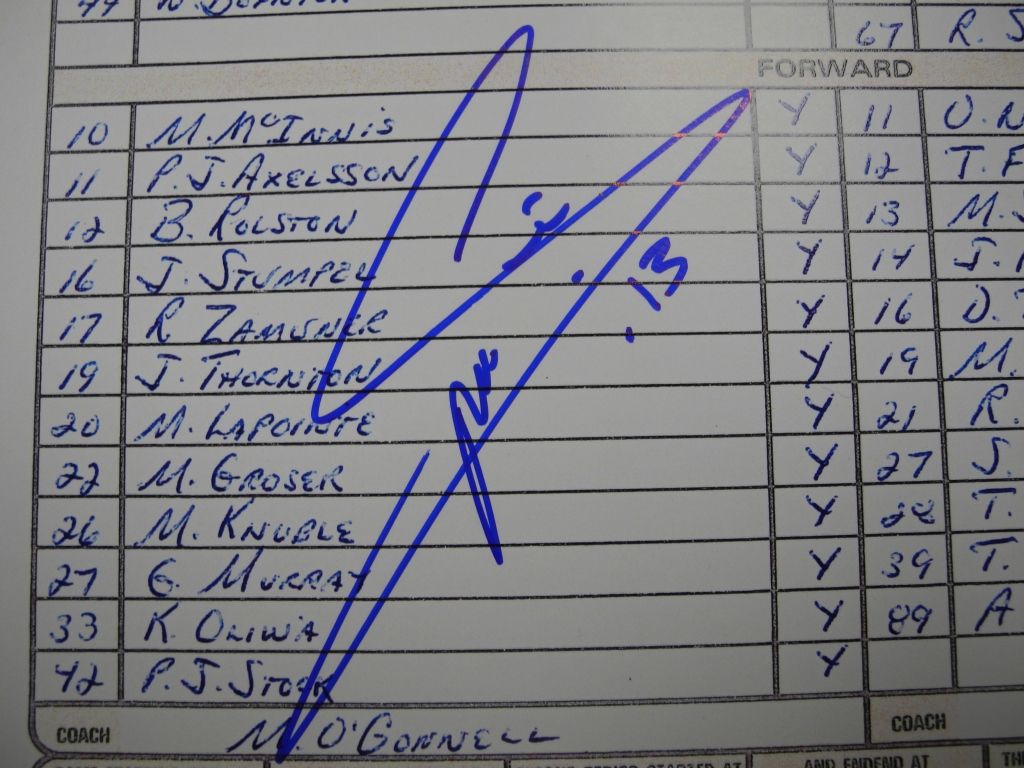 44
67 R. S
FORWARD
10 M. McINNIS Y 11 O. N
11 P.J. AXELSSON Y 12 T. F
12 B. ROLSTON Y 13 M.
16 J. STUMPEL Y 14 J.
17 R ZAMUNER Y 16 D.
19 J. THORNTON Y 19 M.
20 M. LAPOINTE Y 21 R.
22 M. GROSER Y 27 S.
26 M. KNUBLE Y 28 T.
27 G. MURRAY Y 39 T.
33 K. OLIWA Y 89 A
42 P.J. STOCK Y
COACH M. O'CONNELL COACH
AND ENDEND AT